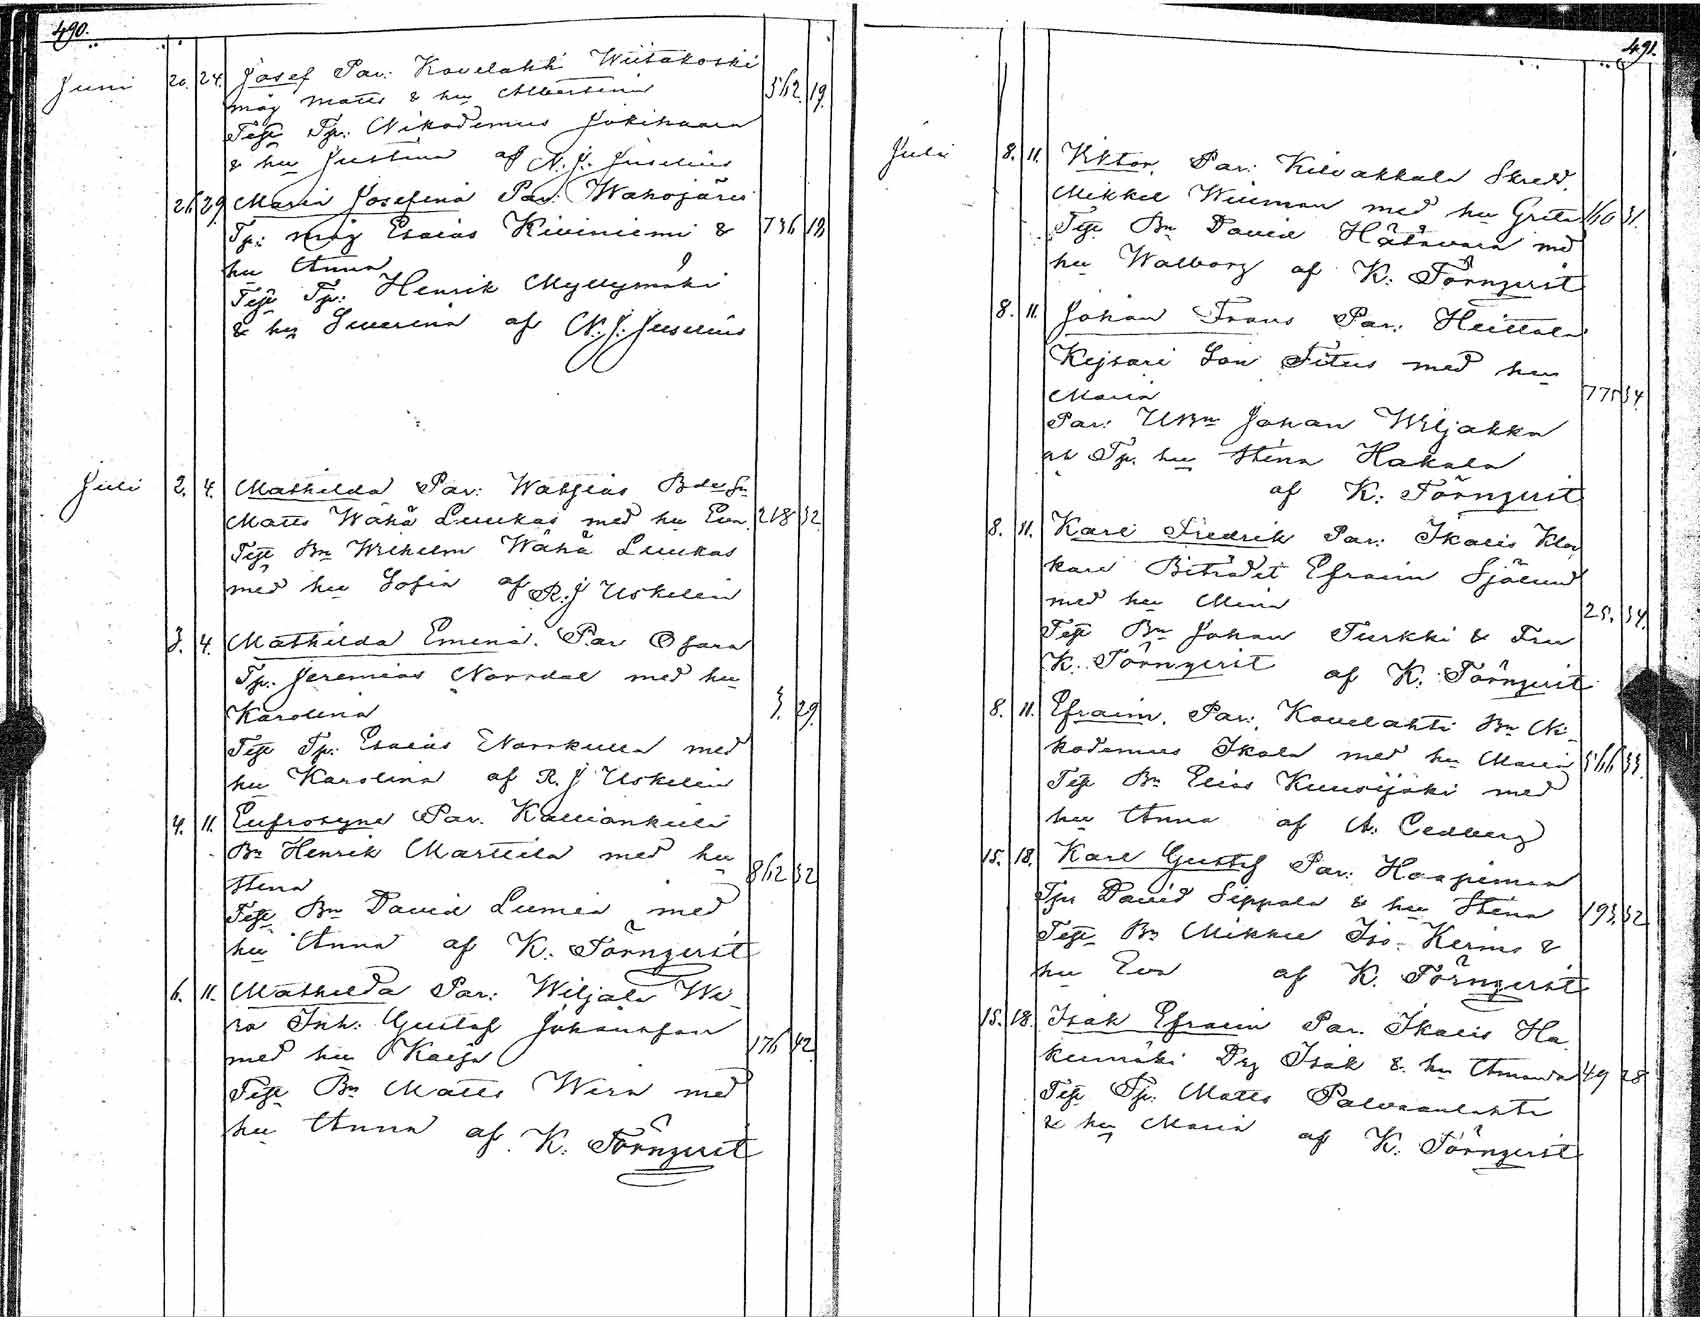 490.
Juni 20. 24. Josef Par: Kovelahti Wiitakoski
måg Matts & hu Albertina 562. 19.
Test Tp: Nikodemus Jokihaara
& hu Justina af N. J. Juselius
26. 29. Maria Josefina Par: Wahojärvi
Tp: måg Esaias Kiviniemi & 736 18
hu Anna
Test Tp: Henrik Myllymäki
& hu Severina af N. J. Juselius
Juli 2. 4. Mathilda Par: Watsias
Matts Wähä Luukas med hu Eva. 218 32
Test Bn Wilhelm Wähä Luukas
med hu Sofia af R. J Uskelin
3. 4. Mathilda Emena. Par Osara
Tp: Jeremias Norrdal med hu
Karolina 5. 29.
Test Tp: Esaias Norrkulla med
hu Karolina af R. J Uskelin
4. 11. Eufrosyne Par. Kallionkieli
Bn Henrik Marttila med hu
Stina 862 32
Test Bn David Lumia med
hu Anna af K. Törnqvist
6. 11. Mathilda Par: Wiljala Wi-
ra Inh: Gustaf Johansson
med hu Kaisa 176 42.
Test Bn Matts Wira med
hu Anna af K. Törnqvist
491.
Juli 8. 11. Viktor. Par: Kilvakkala Skredd.
Mikkel Wiiman med hu Greta 160 31.
Test Bn David med
hu Walborg af K: Törnqvist
8. 11. Johan Frans Par: Heittola
Kejsari Son Titus med hu
Maria 775 34.
Par: Johan Wiljakka
Tp. hu Stina Hakala
af K: Törnqvist
8. 11. Karl Fredrik Par: Ikalis Kloc
kare Biträdet Efraim Sjölund
med hu Mina 25. 34.
Test Bn Johan Turkki & Fru
K. Törnqvist af K. Törnqvist
8. 11. Efraim. Par: Kovelahti Bn Ni-
kodemus Ikola med hu Maria 566 33.
Test Bn Elias Kuusijoki med
hu Anna af A. Cedberg
15. 18. Karl Gustaf Par: Haapimaa
Tp: David Sippola & hu Stina 193. 32
Test Bn Mikkel Iso-Kerimo &
hu Eva af K. Törnqvist
15. 18. Isak Efraim Par. Ikalis Ha
kumäki Drg Isak & hu Amanda 49 28
Test Tp: Matts Palvaanlahti
& hu Maria af K. Törnqvist